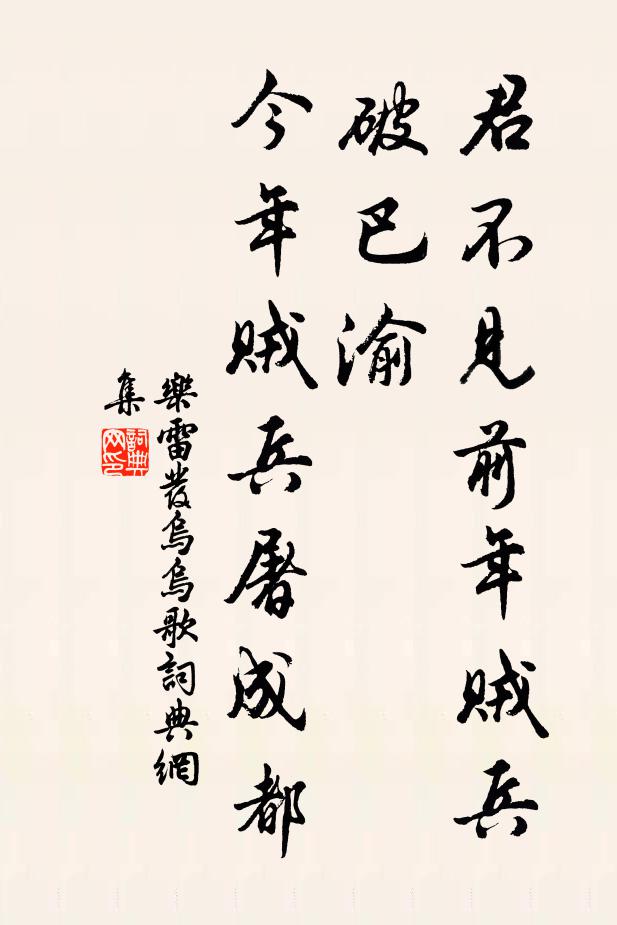 君不見前年賊兵
破巴渝
今年賊兵屠成都
樂雷發烏烏歌詞典網
集
詞典
网印